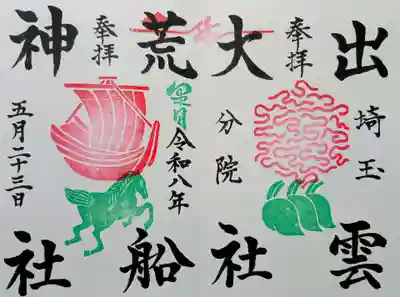 奉拝
出雲
埼玉
大社
分院
奉拝
荒船
神社
令和八年
五月二十三日